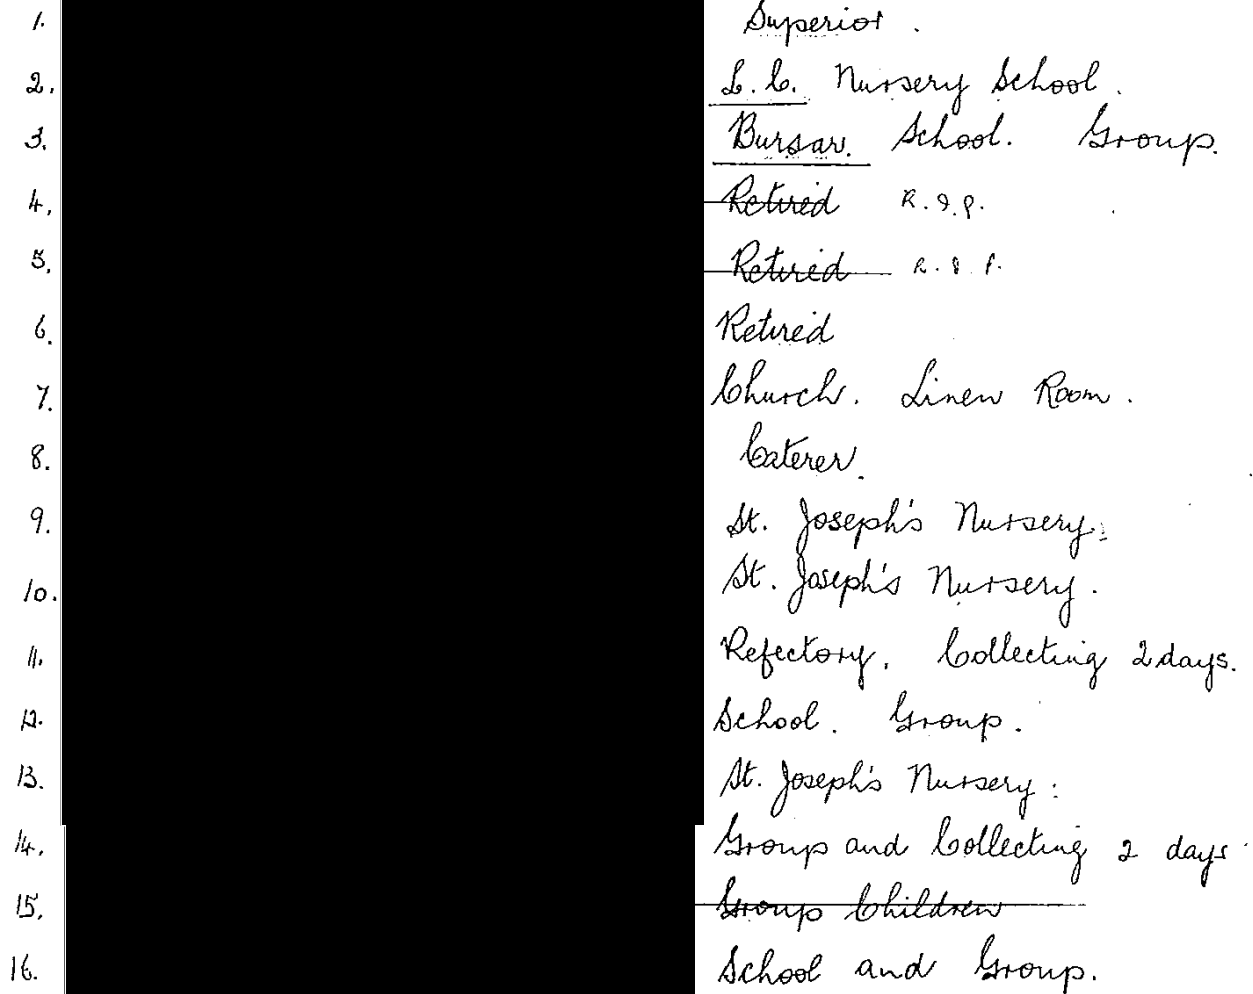 1. Superior.
2. L.C. Nursery School.
3. Bursar. School. Group.
4. Retired R.I.P.
5. Retired R.I.P.
6. Retired
7. Church. Linen Room.
8. Caterer.
9. St. Joseph's Nursery.
10. St. Joseph's Nursery.
11. Refectory. Collecting 2 days.
12. School. Group.
13. St. Joseph's Nursery:
14. Group and Collecting 2 days
15. Group Children
16. School and Group.